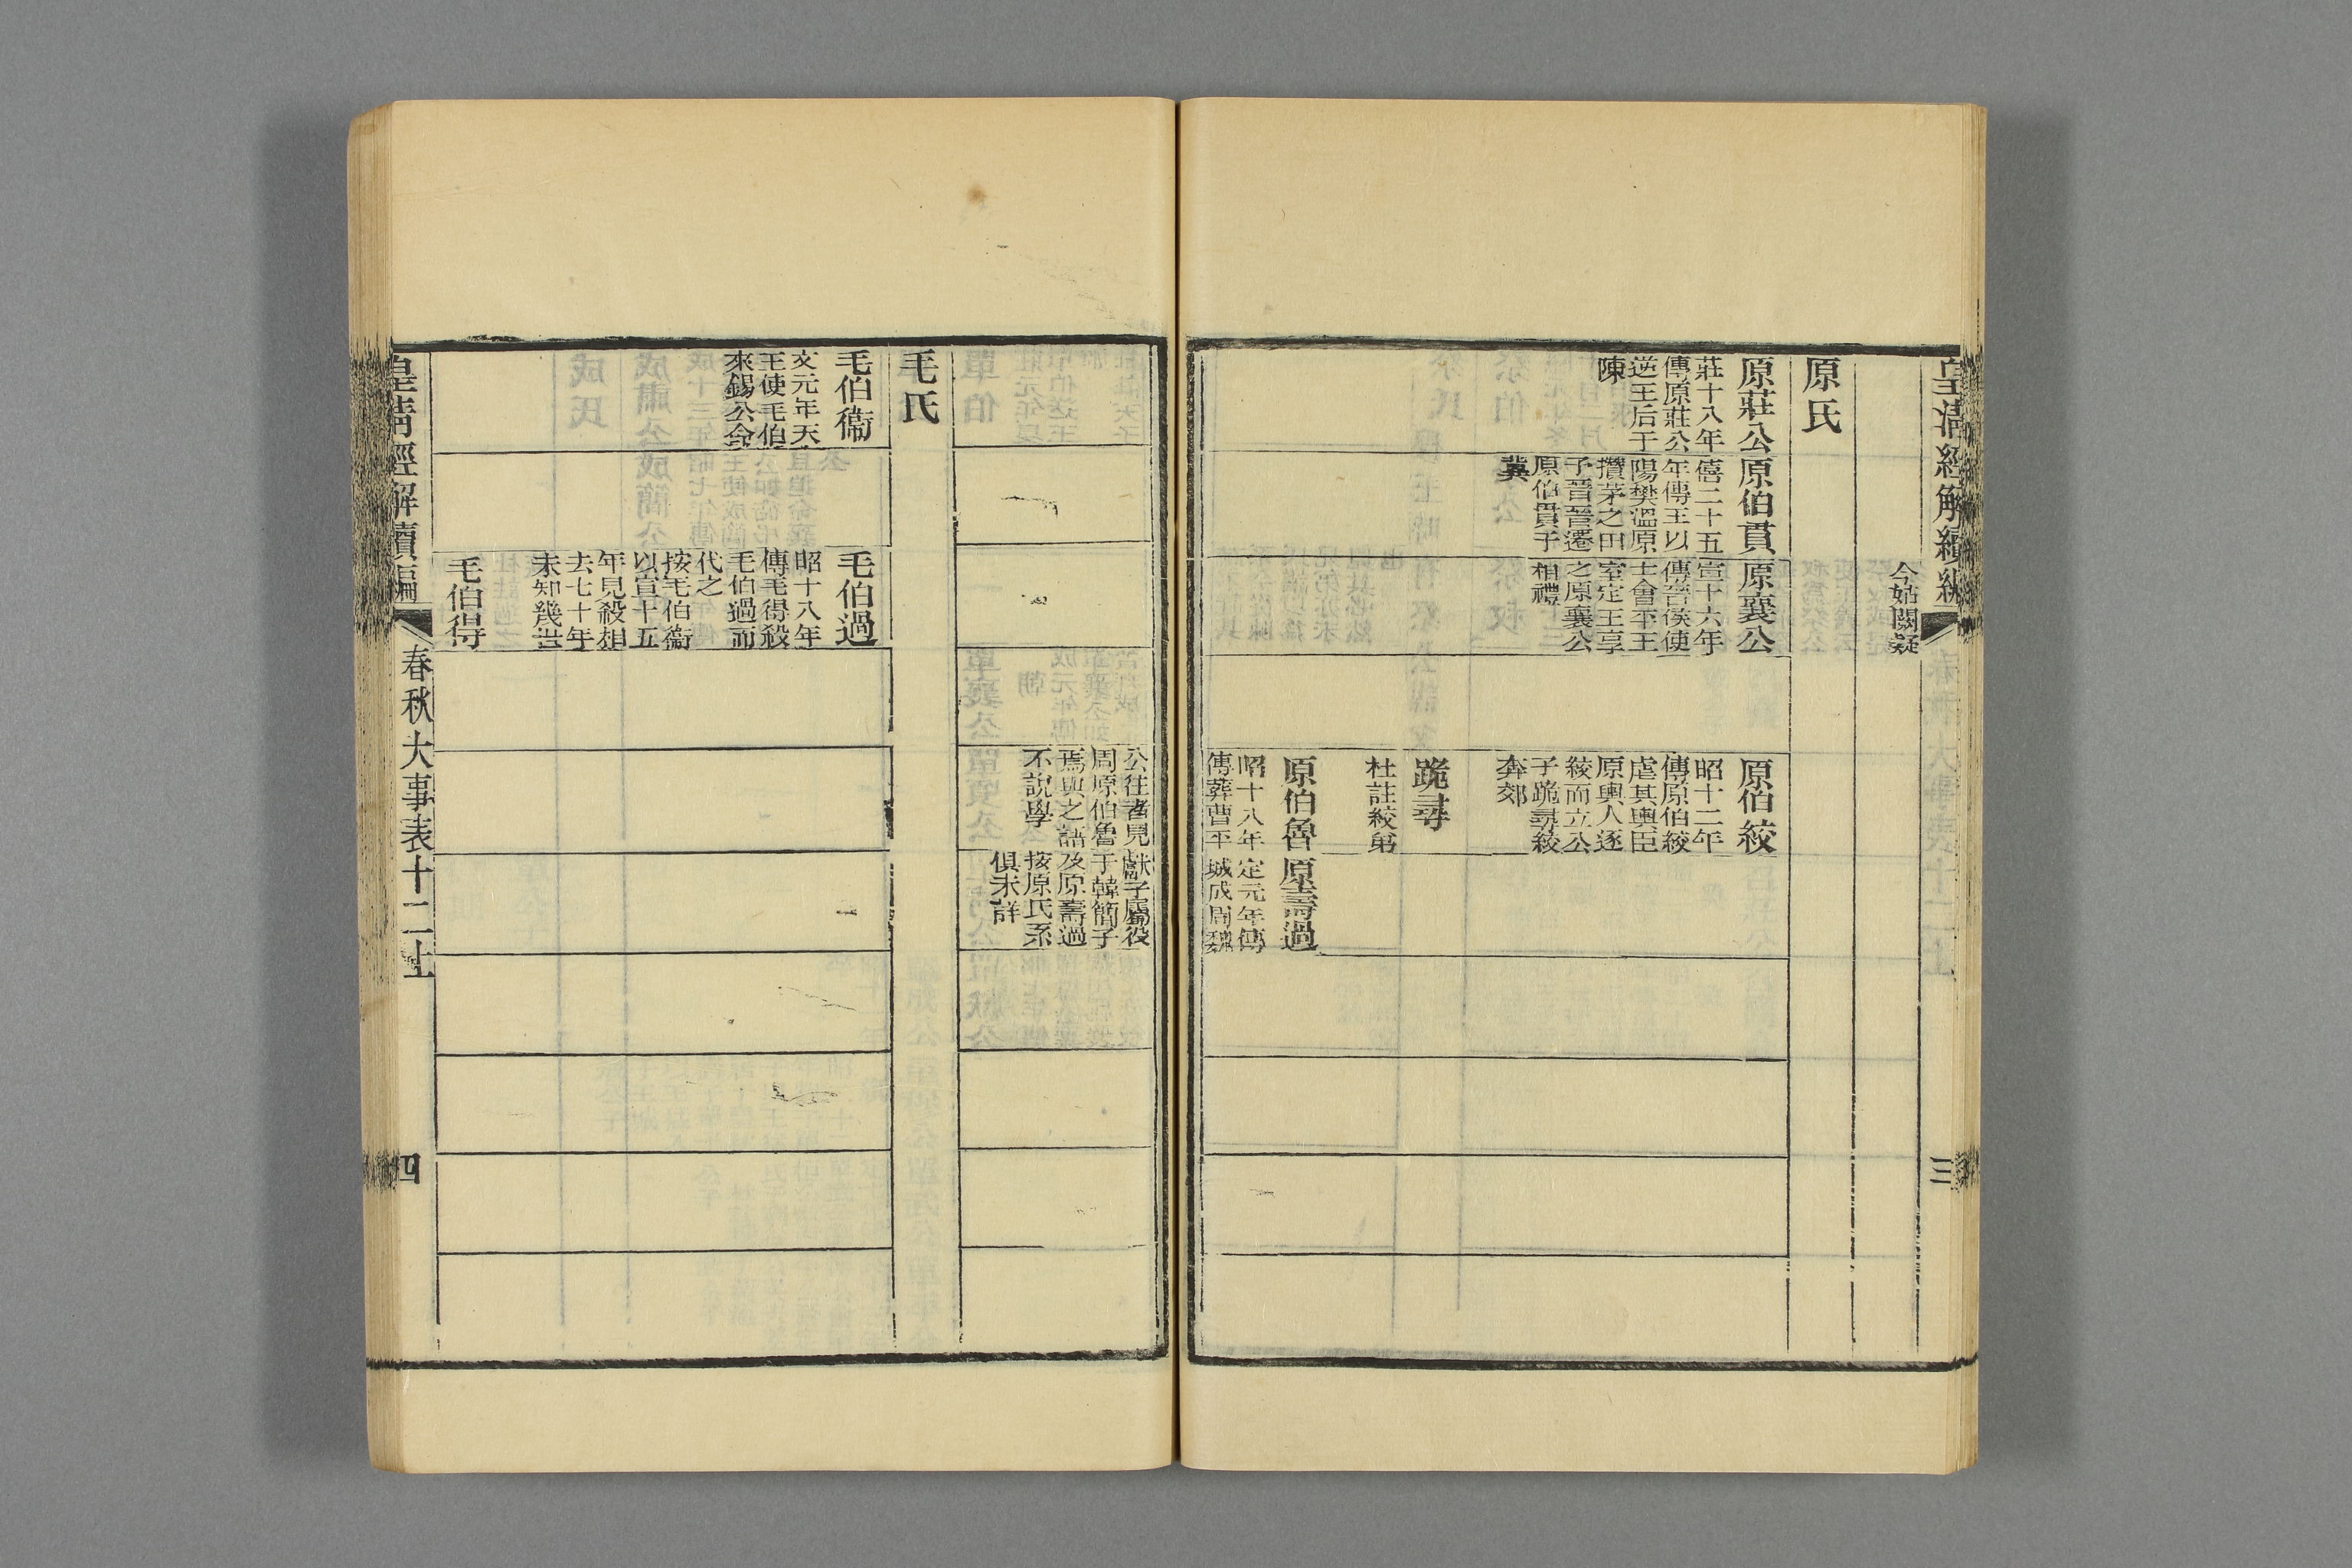 皇清經解續編
三
今姑闕疑
原氏
原莊公
莊十八年
傳原莊公
逆王后于
陳
原伯貫
僖二十五
年傳王以
陽樊溫原
攢茅之田
予晉晉遷
原伯貫于
冀
原襄公
宣十六年
傳晉侯使
士會平王
室定王享
之原襄公
相禮
原伯絞
昭十二年
傳原伯絞
虐其輿臣
原輿人逐
絞而立公
子跪尋絞
奔郊
跪尋
杜註絞弟
原伯魯
昭十八年
傳葬曹平
原壽過
定元年傳
城成周魏
公往者見
周原伯魯
焉與之語
不說學
獻子屬役
于韓簡子
及原壽過
按原氏系
俱未詳
毛氏
毛伯衞
文元年天
王使毛伯
來錫公命
毛伯過
昭十八年
傳毛得殺
毛伯過而
代之
按毛伯衞
以宣十五
年見殺相
去七十年
未知幾世
毛伯得
皇清經解續編
春秋大事表十二上
四